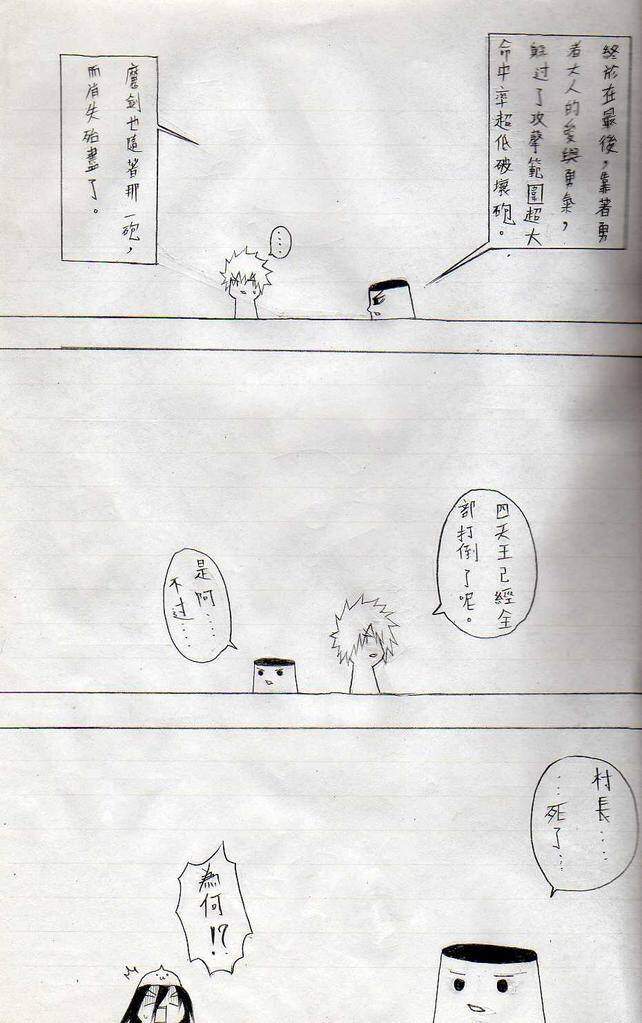 終於在最後，靠著勇
者大人的愛與勇氣，
躲過了攻擊範圍超大
命中率超低破壞砲。
魔劍也隨著那一砲，
而消失殆盡了。
…
四天王已經全
部打倒了呢。
是阿……
不過…
村長……
…死了…
為何!?